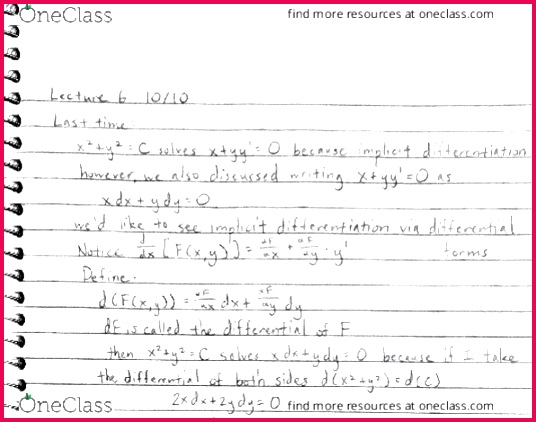 OneClass find more resources at oneclass.com
Lecture 6 10/10
Last time
x²+y²=C solves x+yy'=0 because implicit differentiation
however, we also discussed writing x+yy'=0 as
xdx + ydy = 0
we'd like to see implicit differentiation via differential
Notice d/dx [F(x,y)] = ∂F/∂x + ∂F/∂y · y' forms
Define.
d(F(x,y)) = ∂F/∂x dx + ∂F/∂y dy
dF is called the differential of F
then x²+y²=C solves xdx+ydy=0 because if I take
the differential of both sides d(x²+y²)=d(C)
2xdx+2ydy=0
OneClass find more resources at oneclass.com